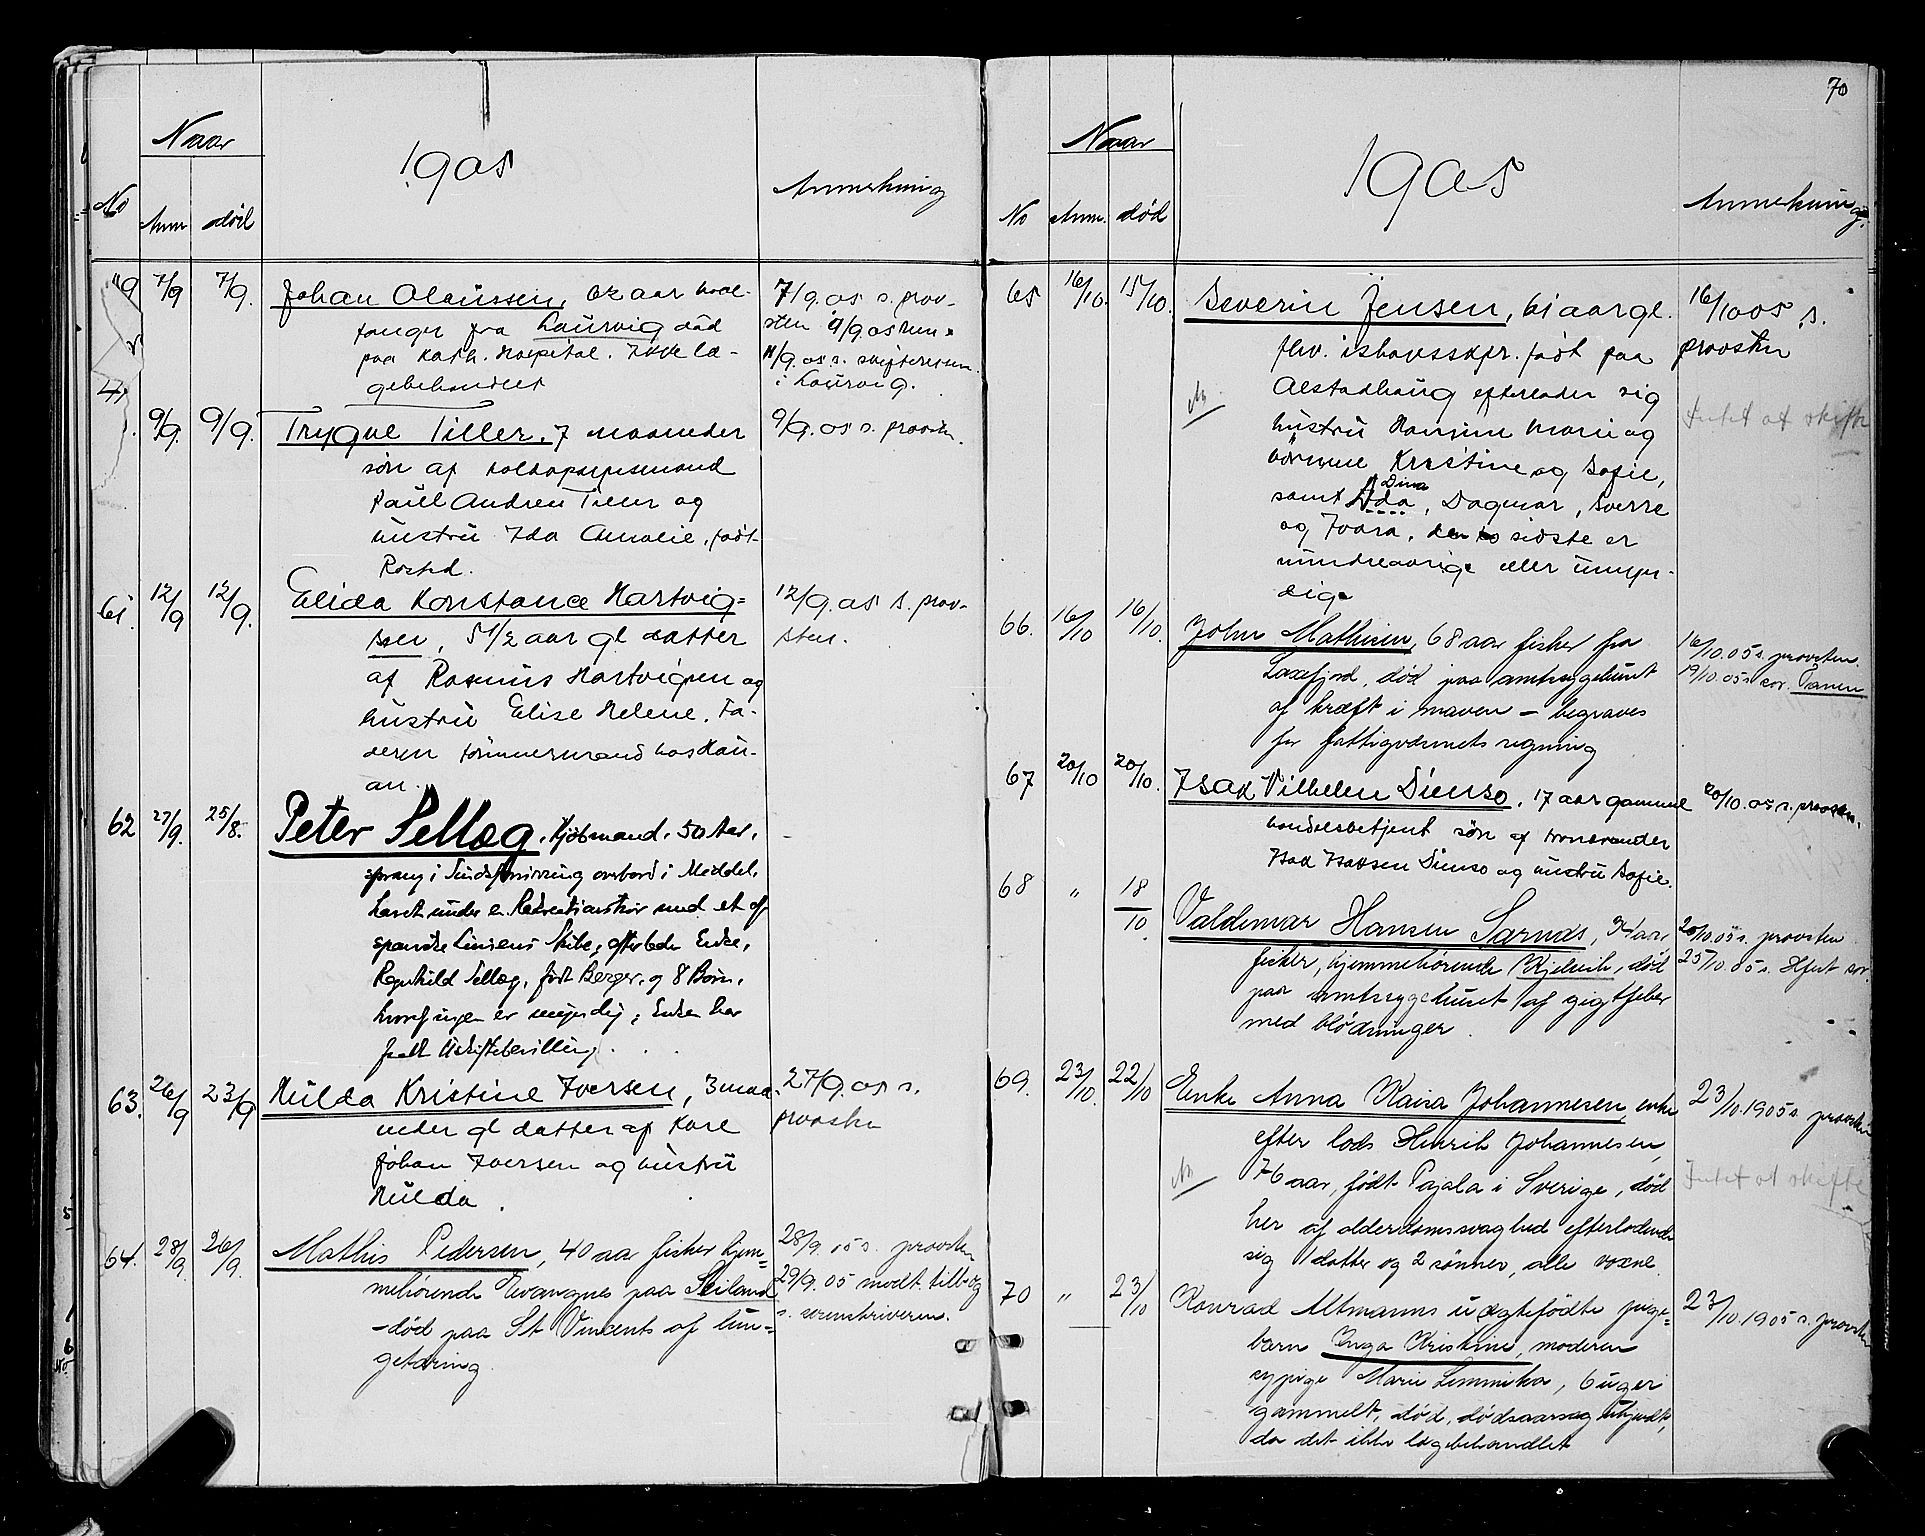 Naar
1905
Anmerkning
No
Anm
død
7/9
7/9.
Johan Olaussen, 62 aar hval-
fanger fra Laurvig død
paa Kath. Hospital. Ikke læ-
gebehandlet
7/9.05 s. prov-
sten 9/9.05
11/9.05 s. skifteretten
i Laurvig.
9/9.
9/9.
Trygve Tiller, 7 maaneder
søn af
Paul Andreu Tiller og
hustru Ida Amalie, født
Rosted.
9/9.05 s. provsten.
61.
12/9
12/9.
Elida Konstance Hartvig=
sen, 5 1/2 aar gl datter
af Rasmus Hartvigsen og
hustru Elise Helene. Fa-
deren tømmermand hos Kau-
an.
12/9.05 s. prov-
sten.
62
27/9.
25/8.
Peter Sellæg. Kjøbmand. 50 Aar.
sprang i Sindsforvirring overbord i Meddel.
havet under en Rekreationstur med et af
spanske Liniens Skibe; efterlader Enke,
Ragnhild Sellæg, født Berger, og 8 Børn,
hvoraf ingen er myndig; Enken har
faaet Uskiftebevilling.
63.
26/9
23/9
Hulda Kristine Iversen, 3 maa-
neder gl datter af Kare
Johan Iversen og hustru
Hulda.
27/9.05 s.
provsten
64.
28/9.
26/9.
Mathis Pedersen, 40 aar fisker hjem=
mehørende Ervangnes paa Seiland
- død paa St Vincents af lun=
getæring.
28/9.05 s. provsten
29/9.05 modt. tilbog
s. sorenskriveren.
70
Naar
1905
Anmerkning.
No
Anm.
død
65
16/10.
15/10.
Severin Jensen, 61 aar gl.
fhv. ishavsskpr. født paa
Alstadhaug efterlader sig
hustru Hansine Marie og
børnene Kristine og Sofie,
Dina
samt Ada, Dagmar, Sverre
og Ivara, de to sidste er
mindreaarige eller umyn-
dige
16/10 05 s.
provsten
Intet at skifte
66.
16/10
16/10.
John Mathisen, 68 aar fisker fra
Laxefjord, død paa amtssygehuset
af kræft i maven - begraves
for fattigvæsenets regning
16/10.05 s. provsten.
19/10.05 s sor. Tanen
67
20/10
20/10.
Isak Vilhelm Diensø, 17 aar gammel
handelsbetjent søn af
Isak Isaksen Diensø og hustru Sofie.
20/10.05 s. provsten.
68
"
18/10.
Valdemar Hansen Sarnæs, 34 aar,
fisker, hjemmehørende Kjelvik, død
paa amtssygehuset af gigtfeber
med blødninger.
20/10.05 s. provsten
25/10.05 s. Hfest sor
69.
23/10.
22/10
Enke Anna Kaisa Johannesen, enke
efter lods Henrik Johannesen,
76 aar, født Pajala i Sverige, død
her af alderdomssvaghed efterladende
sig 1 datter og 2 sønner, alle voxne.
23/10.1905 s. provsten
Intet at skifte
70
"
23/10
Konrad Altmanns uægtefødte pige=
barn Inga Kristine, moderen
sypige Marie Lemmika, 6 uger
gammelt, død, dødsaarsag ukjendt,
da det ikke lægebehandlet
23/10.1905 s. provsten